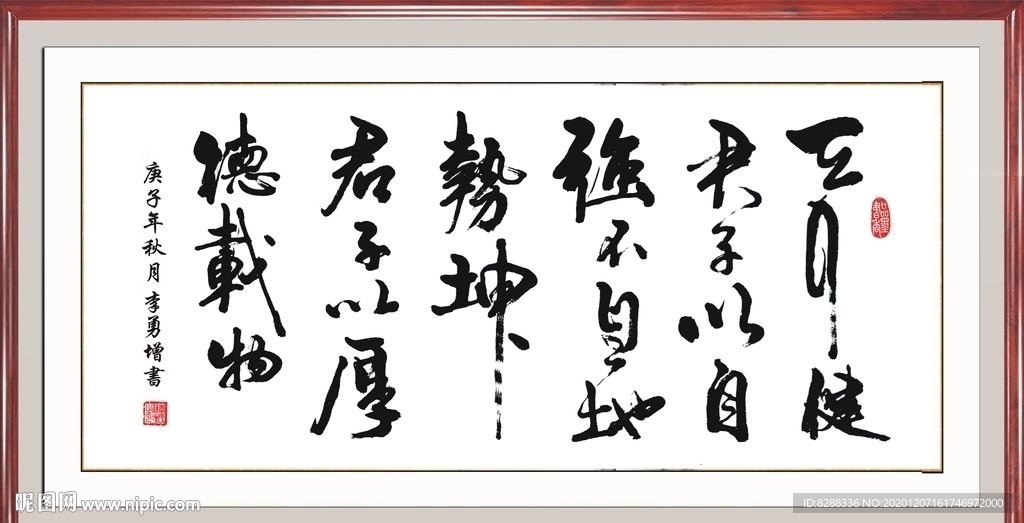 天行健
君子以自
強不息地
勢坤
君子以厚
德載物
庚子年秋月 李勇增書
昵图网 www.nipic.com
ID:8288336 NO:20201207161746972000